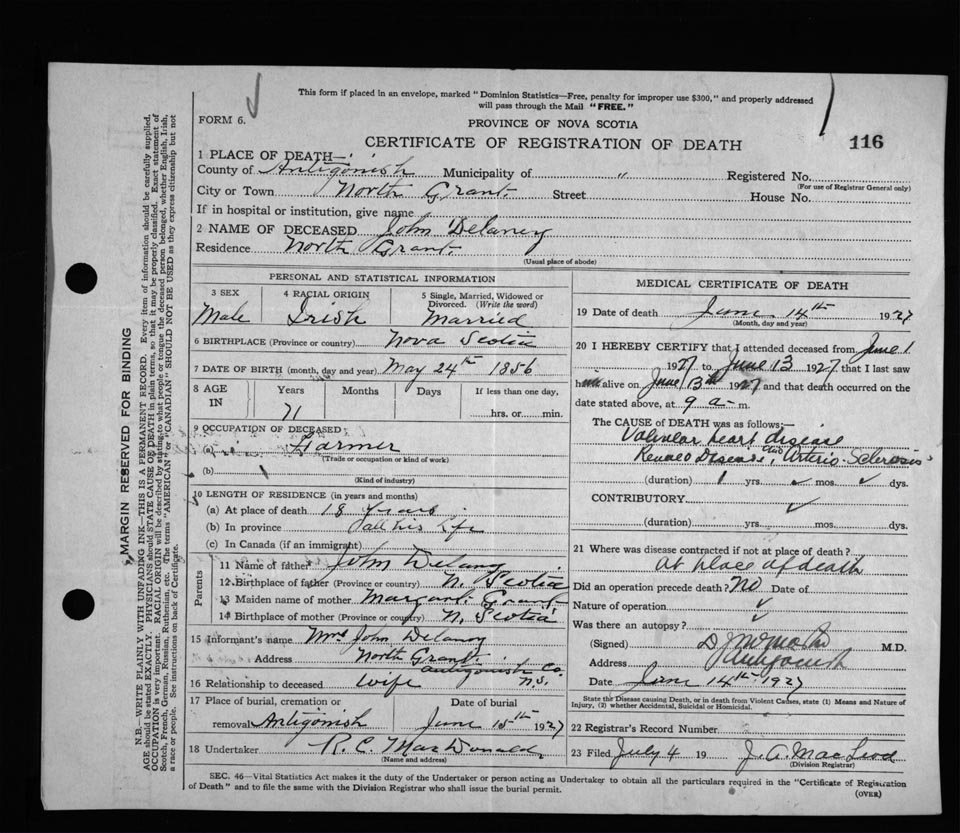 This form if placed in an envelope, marked "Dominion Statistics—Free, penalty for improper use $300," and properly addressed
will pass through the Mail "FREE."
FORM 6.
PROVINCE OF NOVA SCOTIA
CERTIFICATE OF REGISTRATION OF DEATH
116
1 PLACE OF DEATH—
County of Antigonish Municipality of " Registered No.
(For use of Registrar General only)
City or Town North Grant. Street House No.
If in hospital or institution, give name
2 NAME OF DECEASED John Delaney
Residence North Grant.
(Usual place of abode)
PERSONAL AND STATISTICAL INFORMATION
3 SEX
4 RACIAL ORIGIN
5 Single, Married, Widowed or
Divorced. (Write the word)
Male Irish Married
6 BIRTHPLACE (Province or country) Nova Scotia
7 DATE OF BIRTH (month, day and year) May 24th 1856
8 AGE
IN
Years Months Days If less than one day,
71
hrs. or min.
9 OCCUPATION OF DECEASED
(a) Farmer
(Trade or occupation or kind of work)
(b)
(Kind of industry)
10 LENGTH OF RESIDENCE (in years and months)
(a) At place of death 18 years
(b) In province all his life
(c) In Canada (if an immigrant)
Parents
11 Name of father John Delaney
12 Birthplace of father (Province or country) N. Scotia
13 Maiden name of mother Margaret Grant
14 Birthplace of mother (Province or country) N. Scotia
15 Informant's name Mrs John Delaney
Address North Grant.
Antigonish Co.
N.S.
16 Relationship to deceased wife
17 Place of burial, cremation or
removal Antigonish
Date of burial
June 15th 1927
18 Undertaker R. C. MacDonald
(Name and address)
MEDICAL CERTIFICATE OF DEATH
19 Date of death June 14th 1927
(Month, day and year)
20 I HEREBY CERTIFY that I attended deceased from June 1
1927 to June 13 1927 that I last saw
him alive on June 13th 1927 and that death occurred on the
date stated above, at 9 a m.
The CAUSE of DEATH was as follows:—
Valvular heart disease
Renal Disease, and Arterio-Sclerosis
(duration) 1 yrs. mos. dys.
CONTRIBUTORY
(duration) yrs. mos. dys.
21 Where was disease contracted if not at place of death?
at place of death
Did an operation precede death? No Date of
Nature of operation
Was there an autopsy?
(Signed) M.D.
Address Antigonish
Date June 14th 1927
State the Disease causing Death, or in death from Violent Causes, state (1) Means and Nature of
Injury, (2) whether Accidental, Suicidal or Homicidal.
22 Registrar's Record Number
23 Filed July 4 19 J. A. MacLeod
(Division Registrar)
SEC. 46—Vital Statistics Act makes it the duty of the Undertaker or person acting as Undertaker to obtain all the particulars required in the "Certificate of Registration
of Death" and to file the same with the Division Registrar who shall issue the burial permit.
(OVER)
MARGIN RESERVED FOR BINDING
N.B.—WRITE PLAINLY WITH UNFADING INK—THIS IS A PERMANENT RECORD. Every item of information should be carefully supplied.
AGE should be stated EXACTLY. PHYSICIANS should STATE CAUSE OF DEATH in plain terms, so that it may be properly classified. Exact statement of
OCCUPATION is very important. RACIAL ORIGIN will be described by stating to what people or tongue the deceased person belonged, whether English, Irish,
Scotch, French, German, Russian, Ruthenian, etc. The terms "AMERICAN" or "CANADIAN" SHOULD NOT BE USED as they express citizenship but not
a race or people. See instructions on back of Certificate.